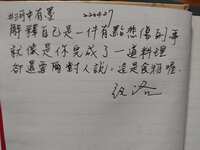 中有墨 220427
解釋自己是一件有點悲傷的事
就像是你完成了一道料理
卻還要對人說，這是食物喔